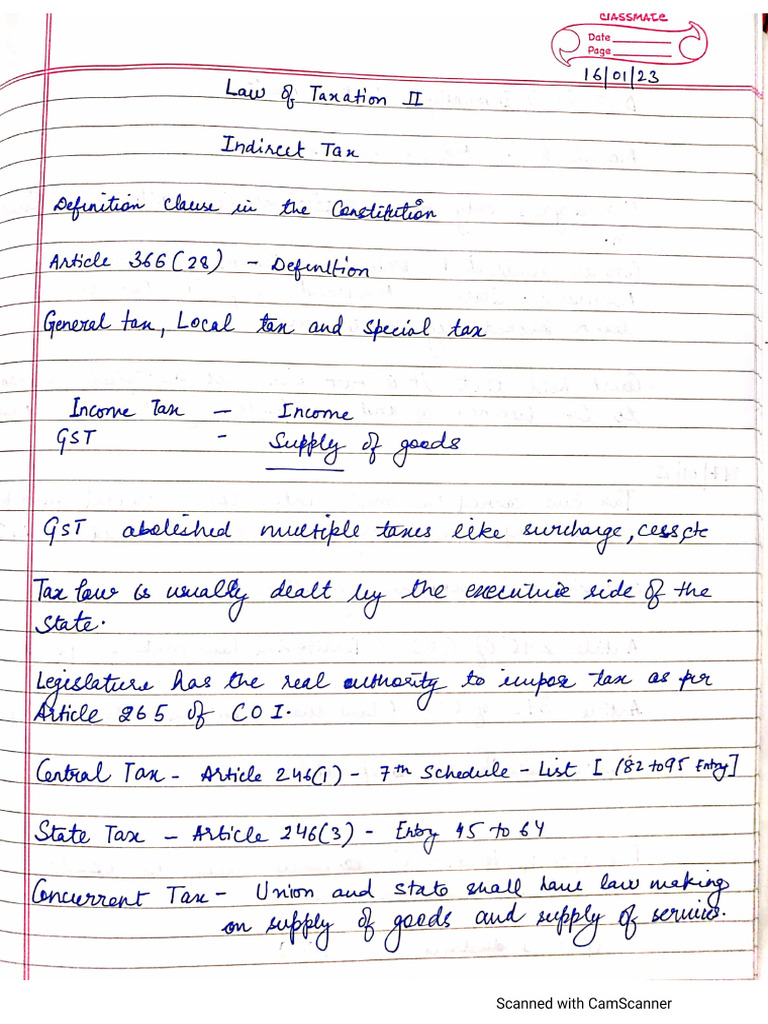 classmate
Date
Page
16/01/23
Law of Taxation II
Indirect Tax
Definition clause in the Constitution
Article 366(28) - Definition
General tax, Local tax and special tax
Income Tax - Income
GST - Supply of goods
GST abolished multiple taxes like surcharge, cess, etc
Tax law is usually dealt by the executive side of the
state.
Legislature has the real authority to impose tax as per
Article 265 of COI.
Central Tax - Article 246(1) - 7th Schedule - List I (82 to 95 Entry]
State Tax - Article 246(3) - Entry 45 to 64
Concurrent Tax - Union and state shall have law making
on supply of goods and supply of services.
Scanned with CamScanner